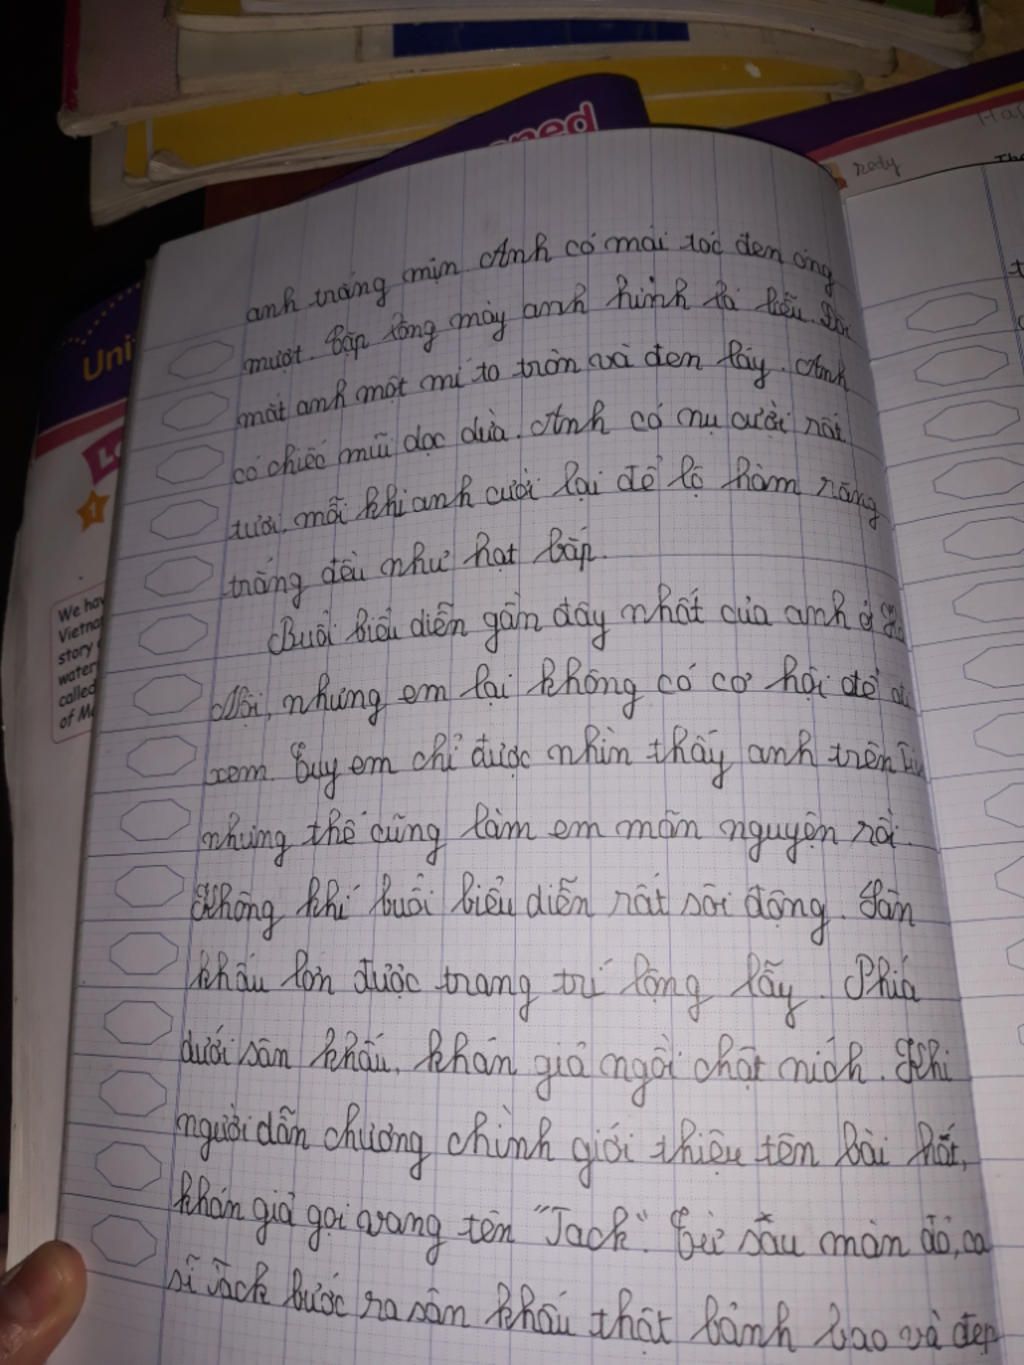 ned
rody
Uni
1
We hav
Vietna
story
water
called
of M
anh trắng mịn. Anh có mái tóc đen óng
mượt. Cặp lông mày anh hình lá liễu. Đôi
mắt anh một mí to tròn và đen láy. Anh
có chiếc mũi dọc dừa. Anh có nụ cười rất
tươi, mỗi khi anh cười lại để lộ hàm răng
trắng đều như hạt bắp.
Buổi biểu diễn gần đây nhất của anh ở Hà
Nội, nhưng em lại không có cơ hội để đi
xem. Tuy em chỉ được nhìn thấy anh trên Ti
nhưng thế cũng làm em mãn nguyện rồi.
Không khí buổi biểu diễn rất sôi động. Sân
khấu lớn được trang trí lộng lẫy. Phía
dưới sân khấu, khán giả ngồi chật ních. Khi
người dẫn chương chình giới thiệu tên bài hát,
khán giả gọi vang tên "Jack". Từ sau màn đó, ca
sĩ Jack bước ra sân khấu thật bảnh bao và đẹp